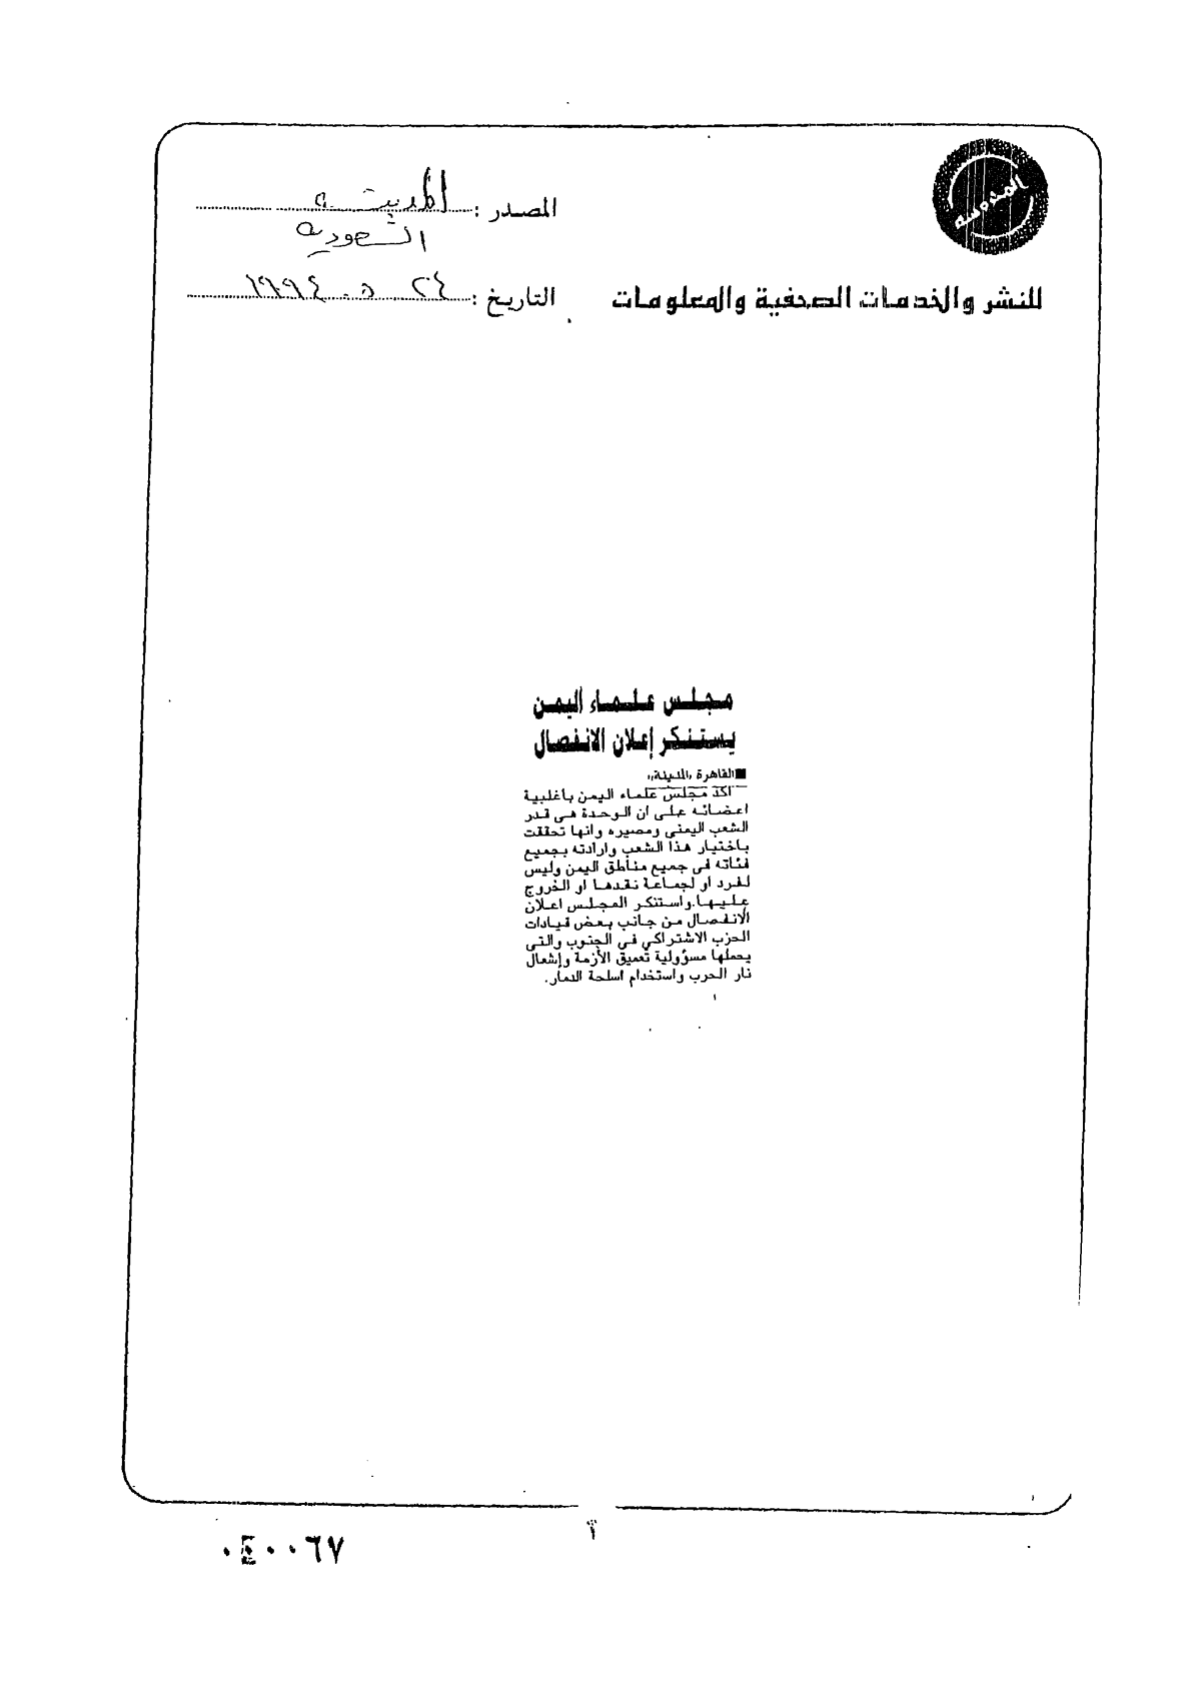 المصدر : المدينة
السعودية
للنشر والخدمات الصحفية والمعلومات
التاريخ : ٢٤ ٥ ١٩٩٤
مجلس علماء اليمن
يستنكر إعلان الانفصال
■القاهرة «المدينة»
اكد مجلس علماء اليمن باغلبية
اعضائه على ان الوحدة هى قدر
الشعب اليمنى ومصيره وانها تحققت
باختيار هذا الشعب وارادته بجميع
فئاته فى جميع مناطق اليمن وليس
لفرد او لجماعة نقدها او الخروج
عليها.واستنكر المجلس اعلان
الانفصال من جانب بعض قيادات
الحزب الاشتراكي فى الجنوب والتى
يحملها مسؤولية تعميق الأزمة وإشعال
نار الحرب واستخدام اسلحة الدمار.
٠٤٠٠٦٧